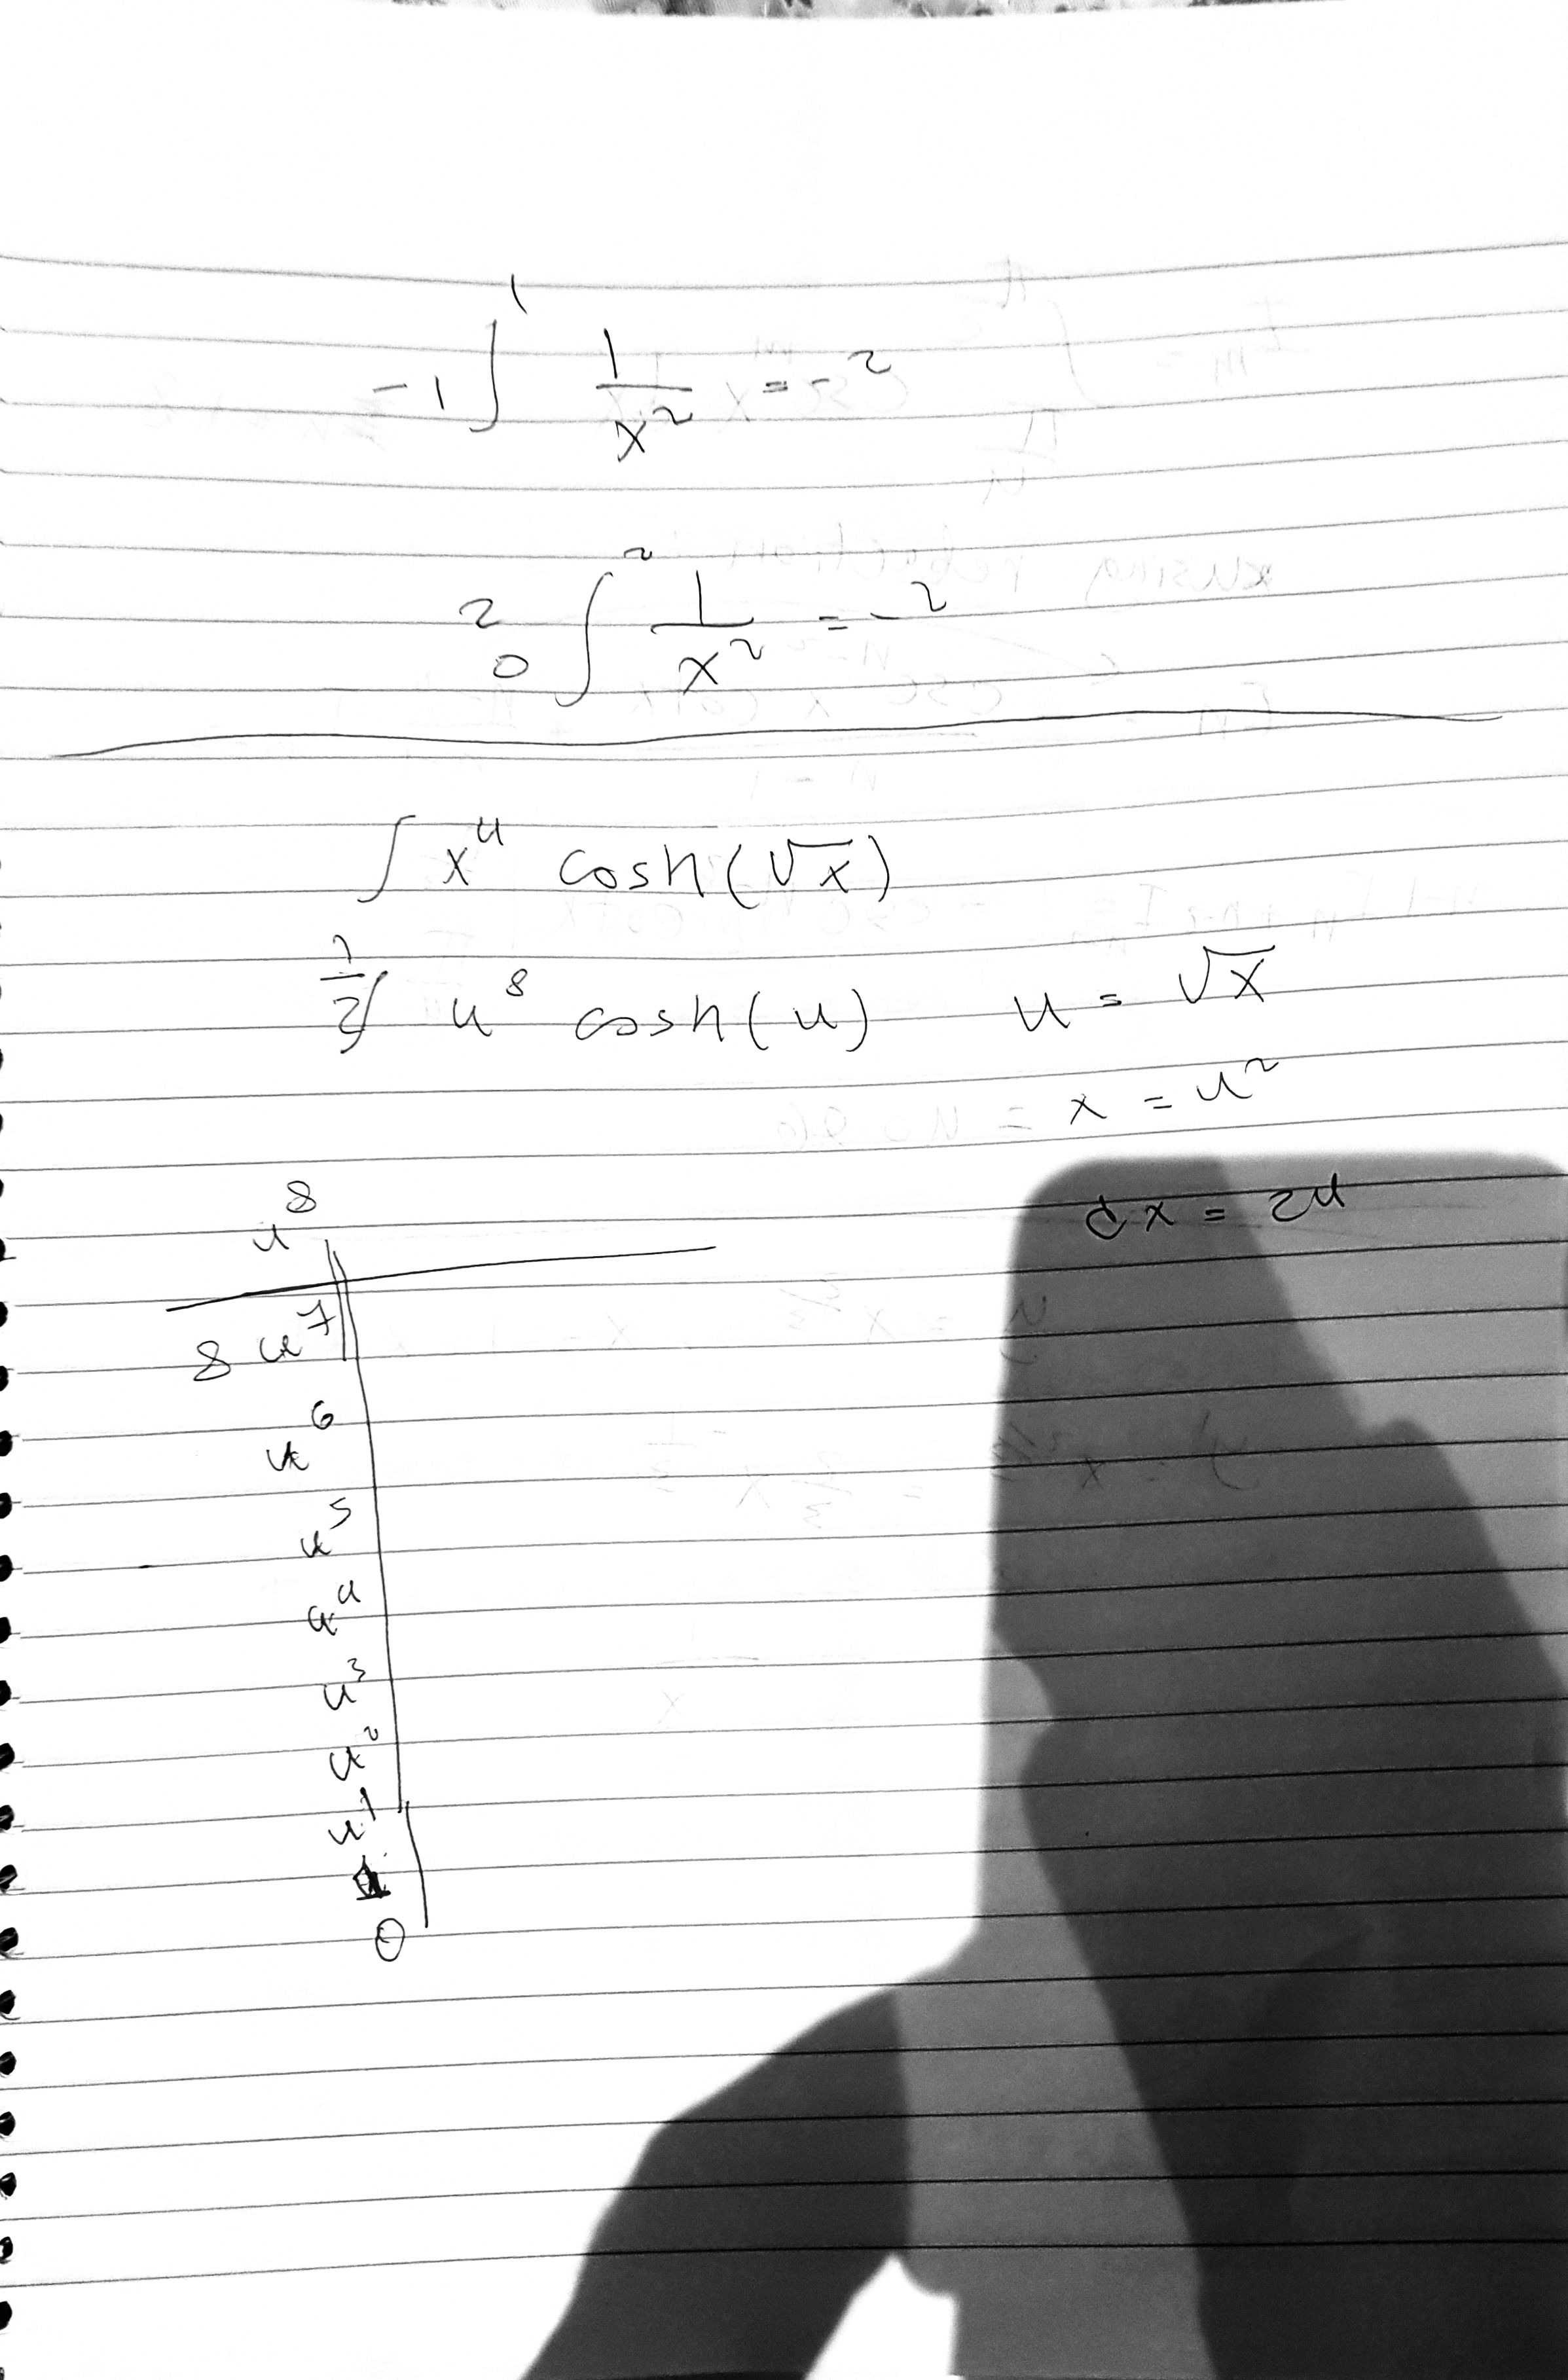 -1∫¹ 1/x² = -2
2 0∫² 1/x² = -2
∫ x⁴ cosh(√x)
1/2∫ u⁸ cosh(u) u = √x
x = u²
dx = 2u
u⁸
8 u⁷
u⁶
u⁵
u⁴
u³
u²
u¹
1
0